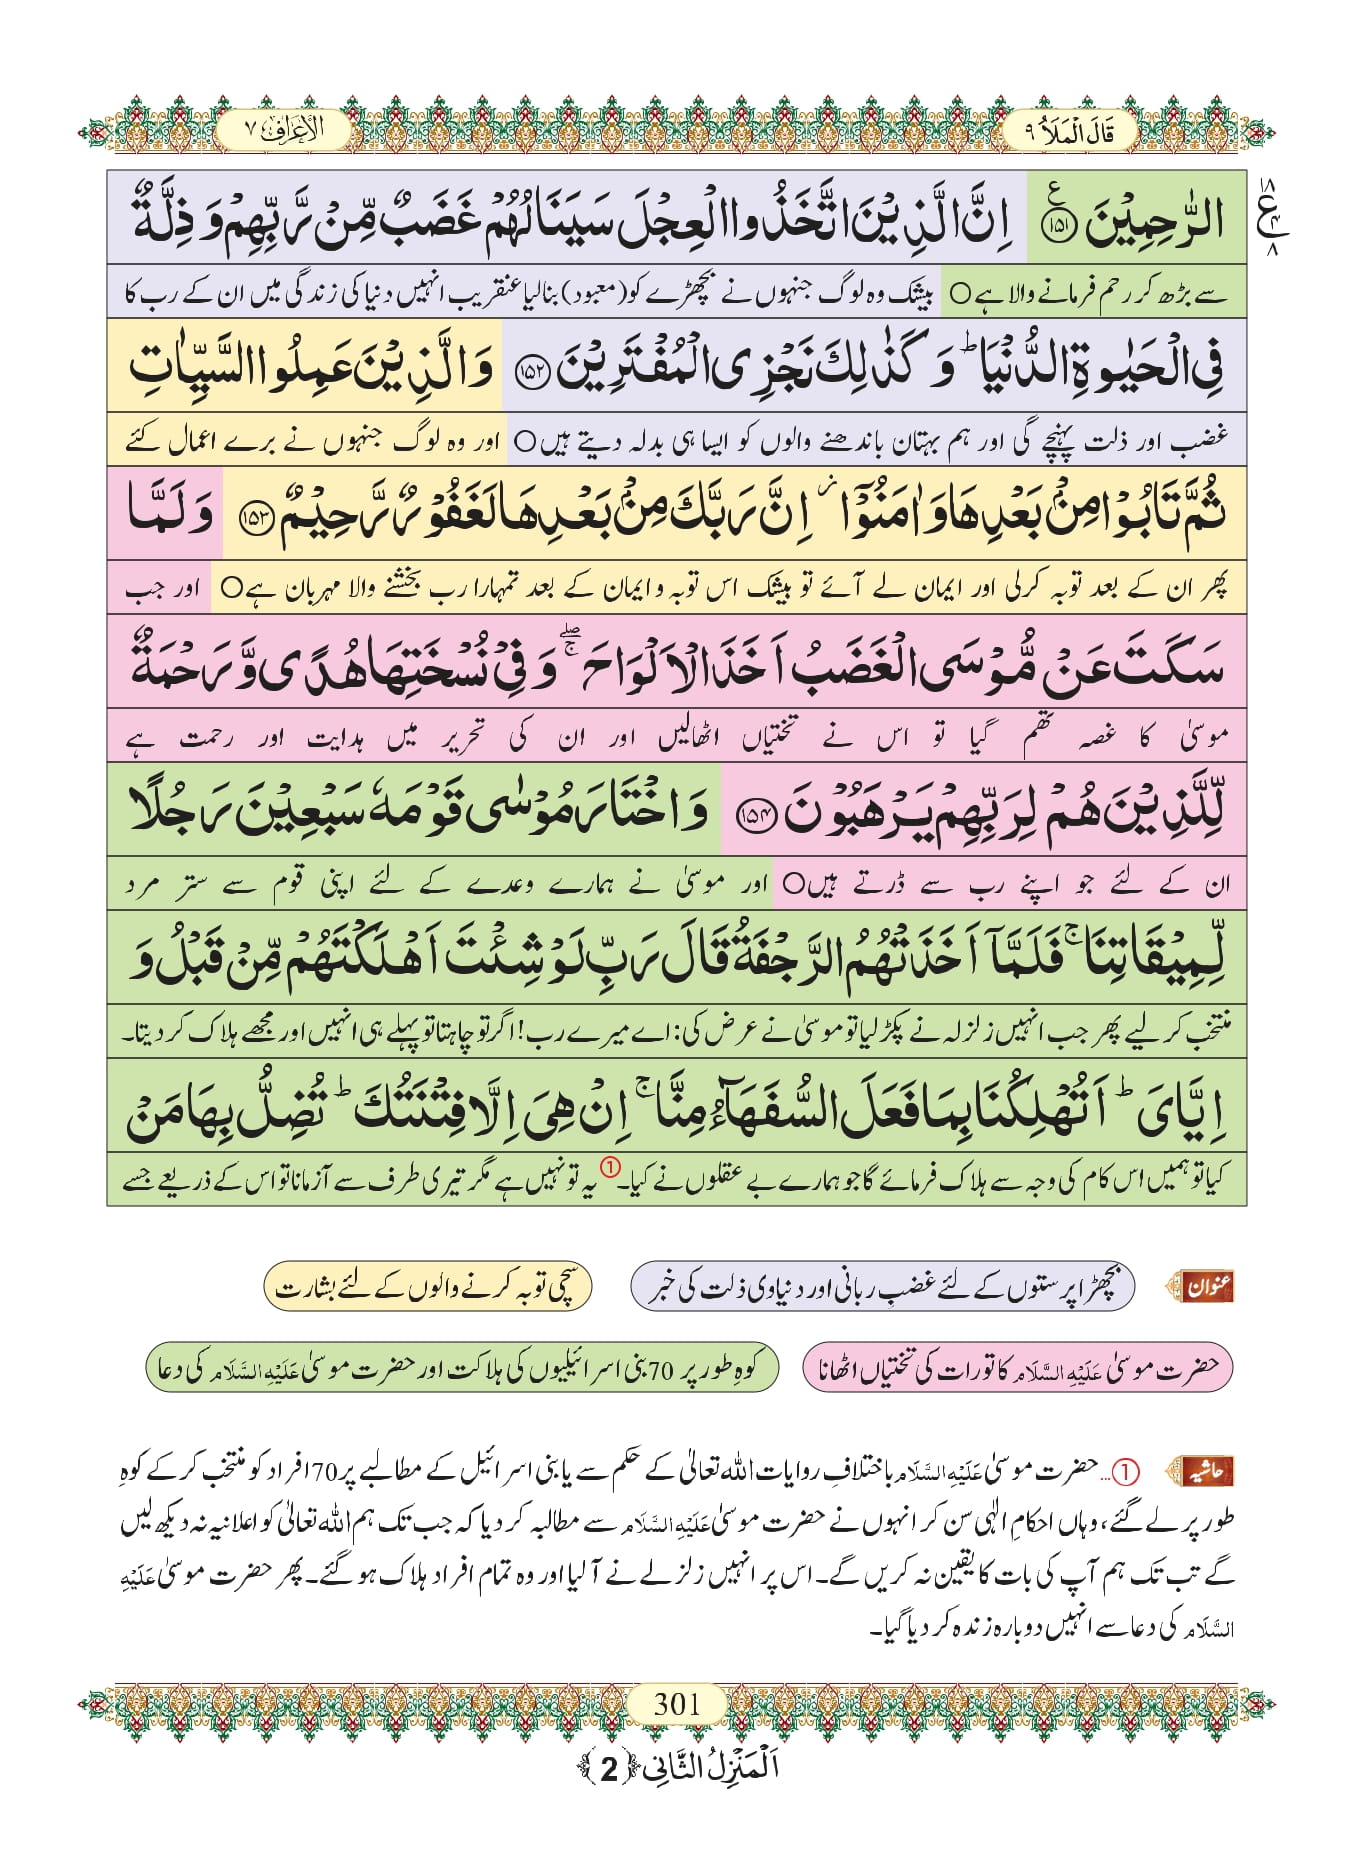 قَالَ الْمَلَاُ ۹
الاعراف ۷
الرّٰحِمِیْنَ ﴿۱۵۱﴾ اِنَّ الَّذِیْنَ اتَّخَذُوا الْعِجْلَ سَیَنَالُهُمْ غَضَبٌ مِّنْ رَّبِّهِمْ وَ ذِلَّةٌ
ع ۱۸ ۴ ۸
سے بڑھ کر رحم فرمانے والا ہے○ بیشک وہ لوگ جنہوں نے بچھڑے کو (معبود) بنالیا عنقریب انہیں دنیا کی زندگی میں ان کے رب کا
فِی الْحَیٰوةِ الدُّنْیَاؕ وَ كَذٰلِكَ نَجْزِی الْمُفْتَرِیْنَ ﴿۱۵۲﴾ وَ الَّذِیْنَ عَمِلُوا السَّیِّاٰتِ
غضب اور ذلت پہنچے گی اور ہم بہتان باندھنے والوں کو ایسا ہی بدلہ دیتے ہیں○ اور وہ لوگ جنہوں نے برے اعمال کئے
ثُمَّ تَابُوْا مِنْۢ بَعْدِهَا وَ اٰمَنُوْۤا٘ اِنَّ رَبَّكَ مِنْۢ بَعْدِهَا لَغَفُوْرٌ رَّحِیْمٌ ﴿۱۵۳﴾ وَ لَمَّا
پھر ان کے بعد توبہ کرلی اور ایمان لے آئے تو بیشک اس توبہ و ایمان کے بعد تمہارا رب بخشنے والا مہربان ہے○ اور جب
سَكَتَ عَنْ مُّوْسَى الْغَضَبُ اَخَذَ الْاَلْوَاحَ ۚۖ وَ فِیْ نُسْخَتِهَا هُدًى وَّ رَحْمَةٌ
موسیٰ کا غصہ تھم گیا تو اس نے تختیاں اٹھالیں اور ان کی تحریر میں ہدایت اور رحمت ہے
لِّلَّذِیْنَ هُمْ لِرَبِّهِمْ یَرْهَبُوْنَ ﴿۱۵۴﴾ وَ اخْتَارَ مُوْسٰى قَوْمَهٗ سَبْعِیْنَ رَجُلًا
ان کے لئے جو اپنے رب سے ڈرتے ہیں○ اور موسیٰ نے ہمارے وعدے کے لئے اپنی قوم سے ستر مرد
لِّمِیْقَاتِنَاۚ فَلَمَّاۤ اَخَذَتْهُمُ الرَّجْفَةُ قَالَ رَبِّ لَوْ شِئْتَ اَهْلَكْتَهُمْ مِّنْ قَبْلُ وَ
منتخب کرلیے پھر جب انہیں زلزلہ نے پکڑ لیا تو موسیٰ نے عرض کی: اے میرے رب! اگر تو چاہتا تو پہلے ہی انہیں اور مجھے ہلاک کردیتا۔
اِیَّایَؕ اَتُهْلِكُنَا بِمَا فَعَلَ السُّفَهَآءُ مِنَّاۚ اِنْ هِیَ اِلَّا فِتْنَتُكَؕ تُضِلُّ بِهَا مَنْ
کیا تو ہمیں اس کام کی وجہ سے ہلاک فرمائے گا جو ہمارے بے عقلوں نے کیا۔① یہ تو نہیں ہے مگر تیری طرف سے آزمانا تو اس کے ذریعے جسے
عنوان بچھڑا پرستوں کے لئے غضبِ ربانی اور دنیاوی ذلت کی خبر سچی توبہ کرنے والوں کے لئے بشارت
حضرت موسیٰ عَلَیْهِ السَّلَام کا تورات کی تختیاں اٹھانا کوہِ طور پر 70 بنی اسرائیلیوں کی ہلاکت اور حضرت موسیٰ عَلَیْهِ السَّلَام کی دعا
حاشیہ ①... حضرت موسیٰ عَلَیْهِ السَّلَام باختلافِ روایات اللہ تعالیٰ کے حکم سے یا بنی اسرائیل کے مطالبے پر 70 افراد کو منتخب کر کے کوہِ
طور پر لے گئے، وہاں احکامِ الٰہی سن کر انہوں نے حضرت موسیٰ عَلَیْهِ السَّلَام سے مطالبہ کردیا کہ جب تک ہم اللہ تعالیٰ کو اعلانیہ نہ دیکھ لیں
گے تب تک ہم آپ کی بات کا یقین نہ کریں گے۔ اس پر انہیں زلزلے نے آلیا اور وہ تمام افراد ہلاک ہوگئے۔ پھر حضرت موسیٰ عَلَیْهِ
السَّلَام کی دعا سے انہیں دوبارہ زندہ کردیا گیا۔
301
اَلْمَنْزِلُ الثَّانِی ﴿2﴾